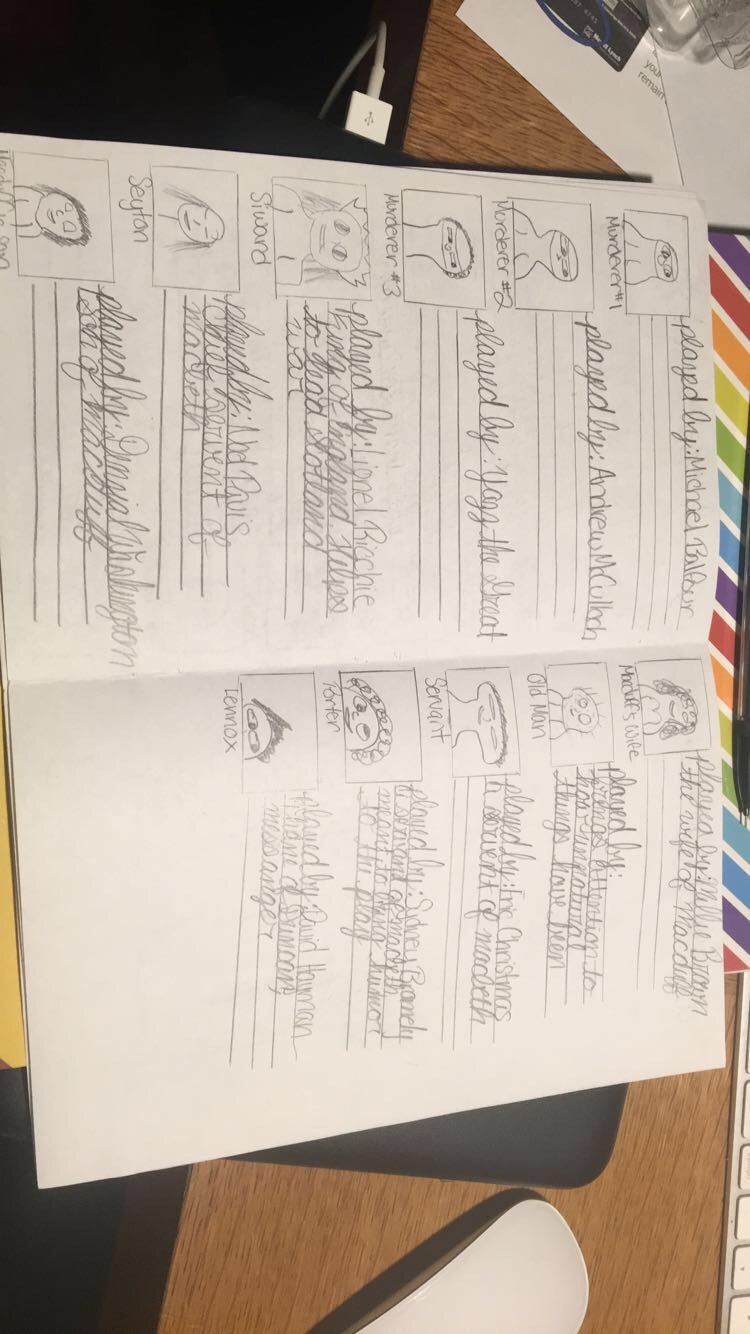 Murderer #1
played by: Michael Balfour
Murderer #2
played by: Andrew McCulloch
Murderer #3
played by: Yagg the Great
Siward
played by: Lionel Ricchie
King of England helps
to lead Scotland
war
Seyton
played by: Ned Davis
chief servent of
macbeth
played by: Denzial Washington
son of macduff
Macduff's Wife
played by: Millie Brown
the wife of Macduff
Old Man
played by:
brings attention to
how unnatural
things have been
Servant
played by: Eric Christmas
a servent of macbeth
Porter
played by: Sidney Bromely
a servant of macbeth
meant to bring humor
to the play
Lennox
played by: David Hayman
thane of Duncans
messanger
your
remain